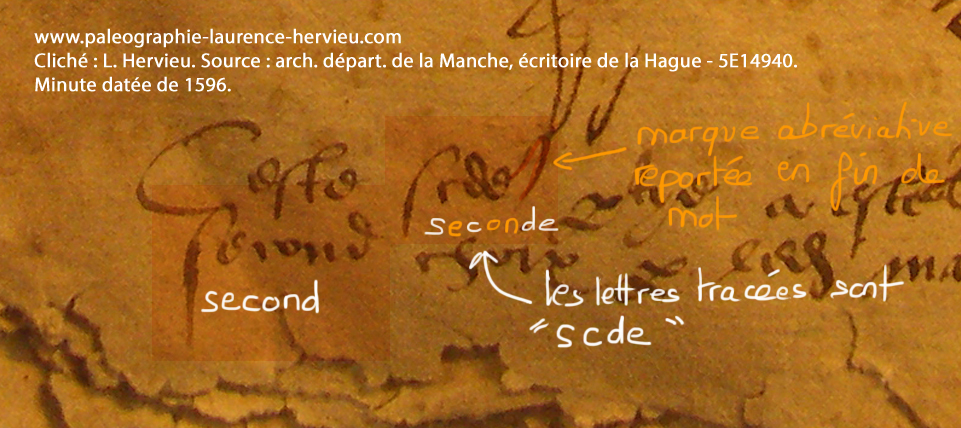 www.paleographie-laurence-hervieu.com
Cliché : L. Hervieu. Source : arch. départ. de la Manche, écritoire de la Hague - 5E14940.
Minute datée de 1596.
marque abréviative
reportée en fin de
mot
Ceste scde
seconde
second choix
second
les lettres tracées sont
"scde"